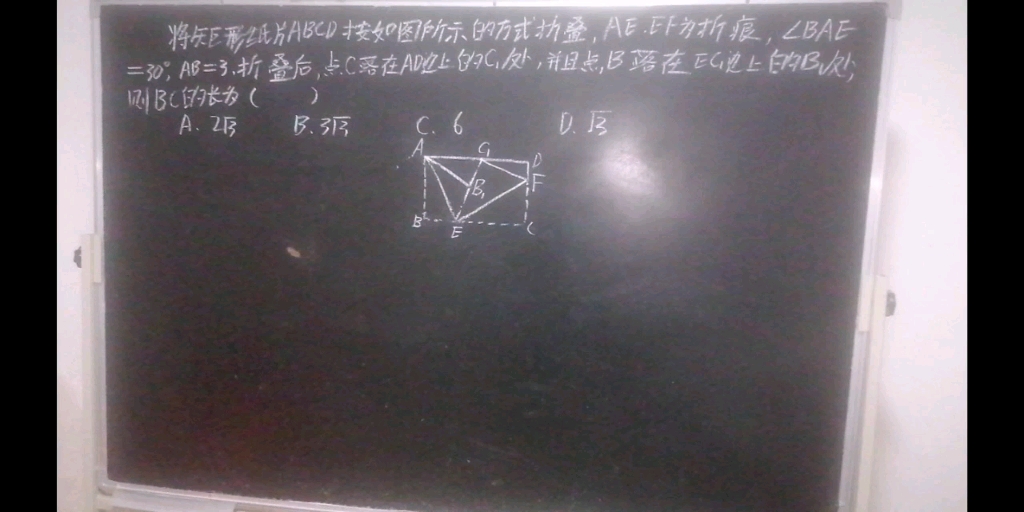 将矩形纸片ABCD按如图所示的方式折叠,AE.EF为折痕,∠BAE
=30°,AB=3.折叠后,点C落在AD边上的C₁处,并且点B落在EC₁边上的B₁处,
则BC的长为( )
A. 2√3 B. 3√3 C. 6 D. √3
A C₁ D
F
B₁
B E C